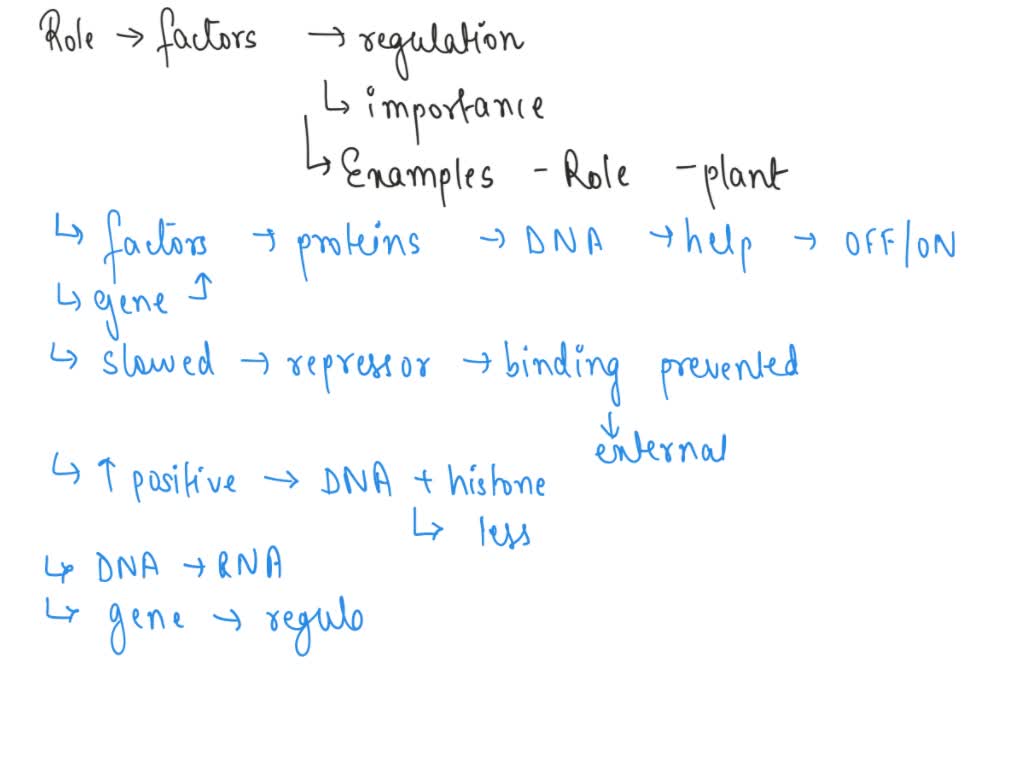 Role → factors → regulation
↳ importance
↳ Examples - Role - plant
↳ factors → proteins → DNA → help → OFF/ON
↳ gene ↑
↳ slowed → repressor → binding prevented
↓
external
↳ ↑ positive → DNA + histone
↳ less
↳ DNA → RNA
↳ gene → regulo